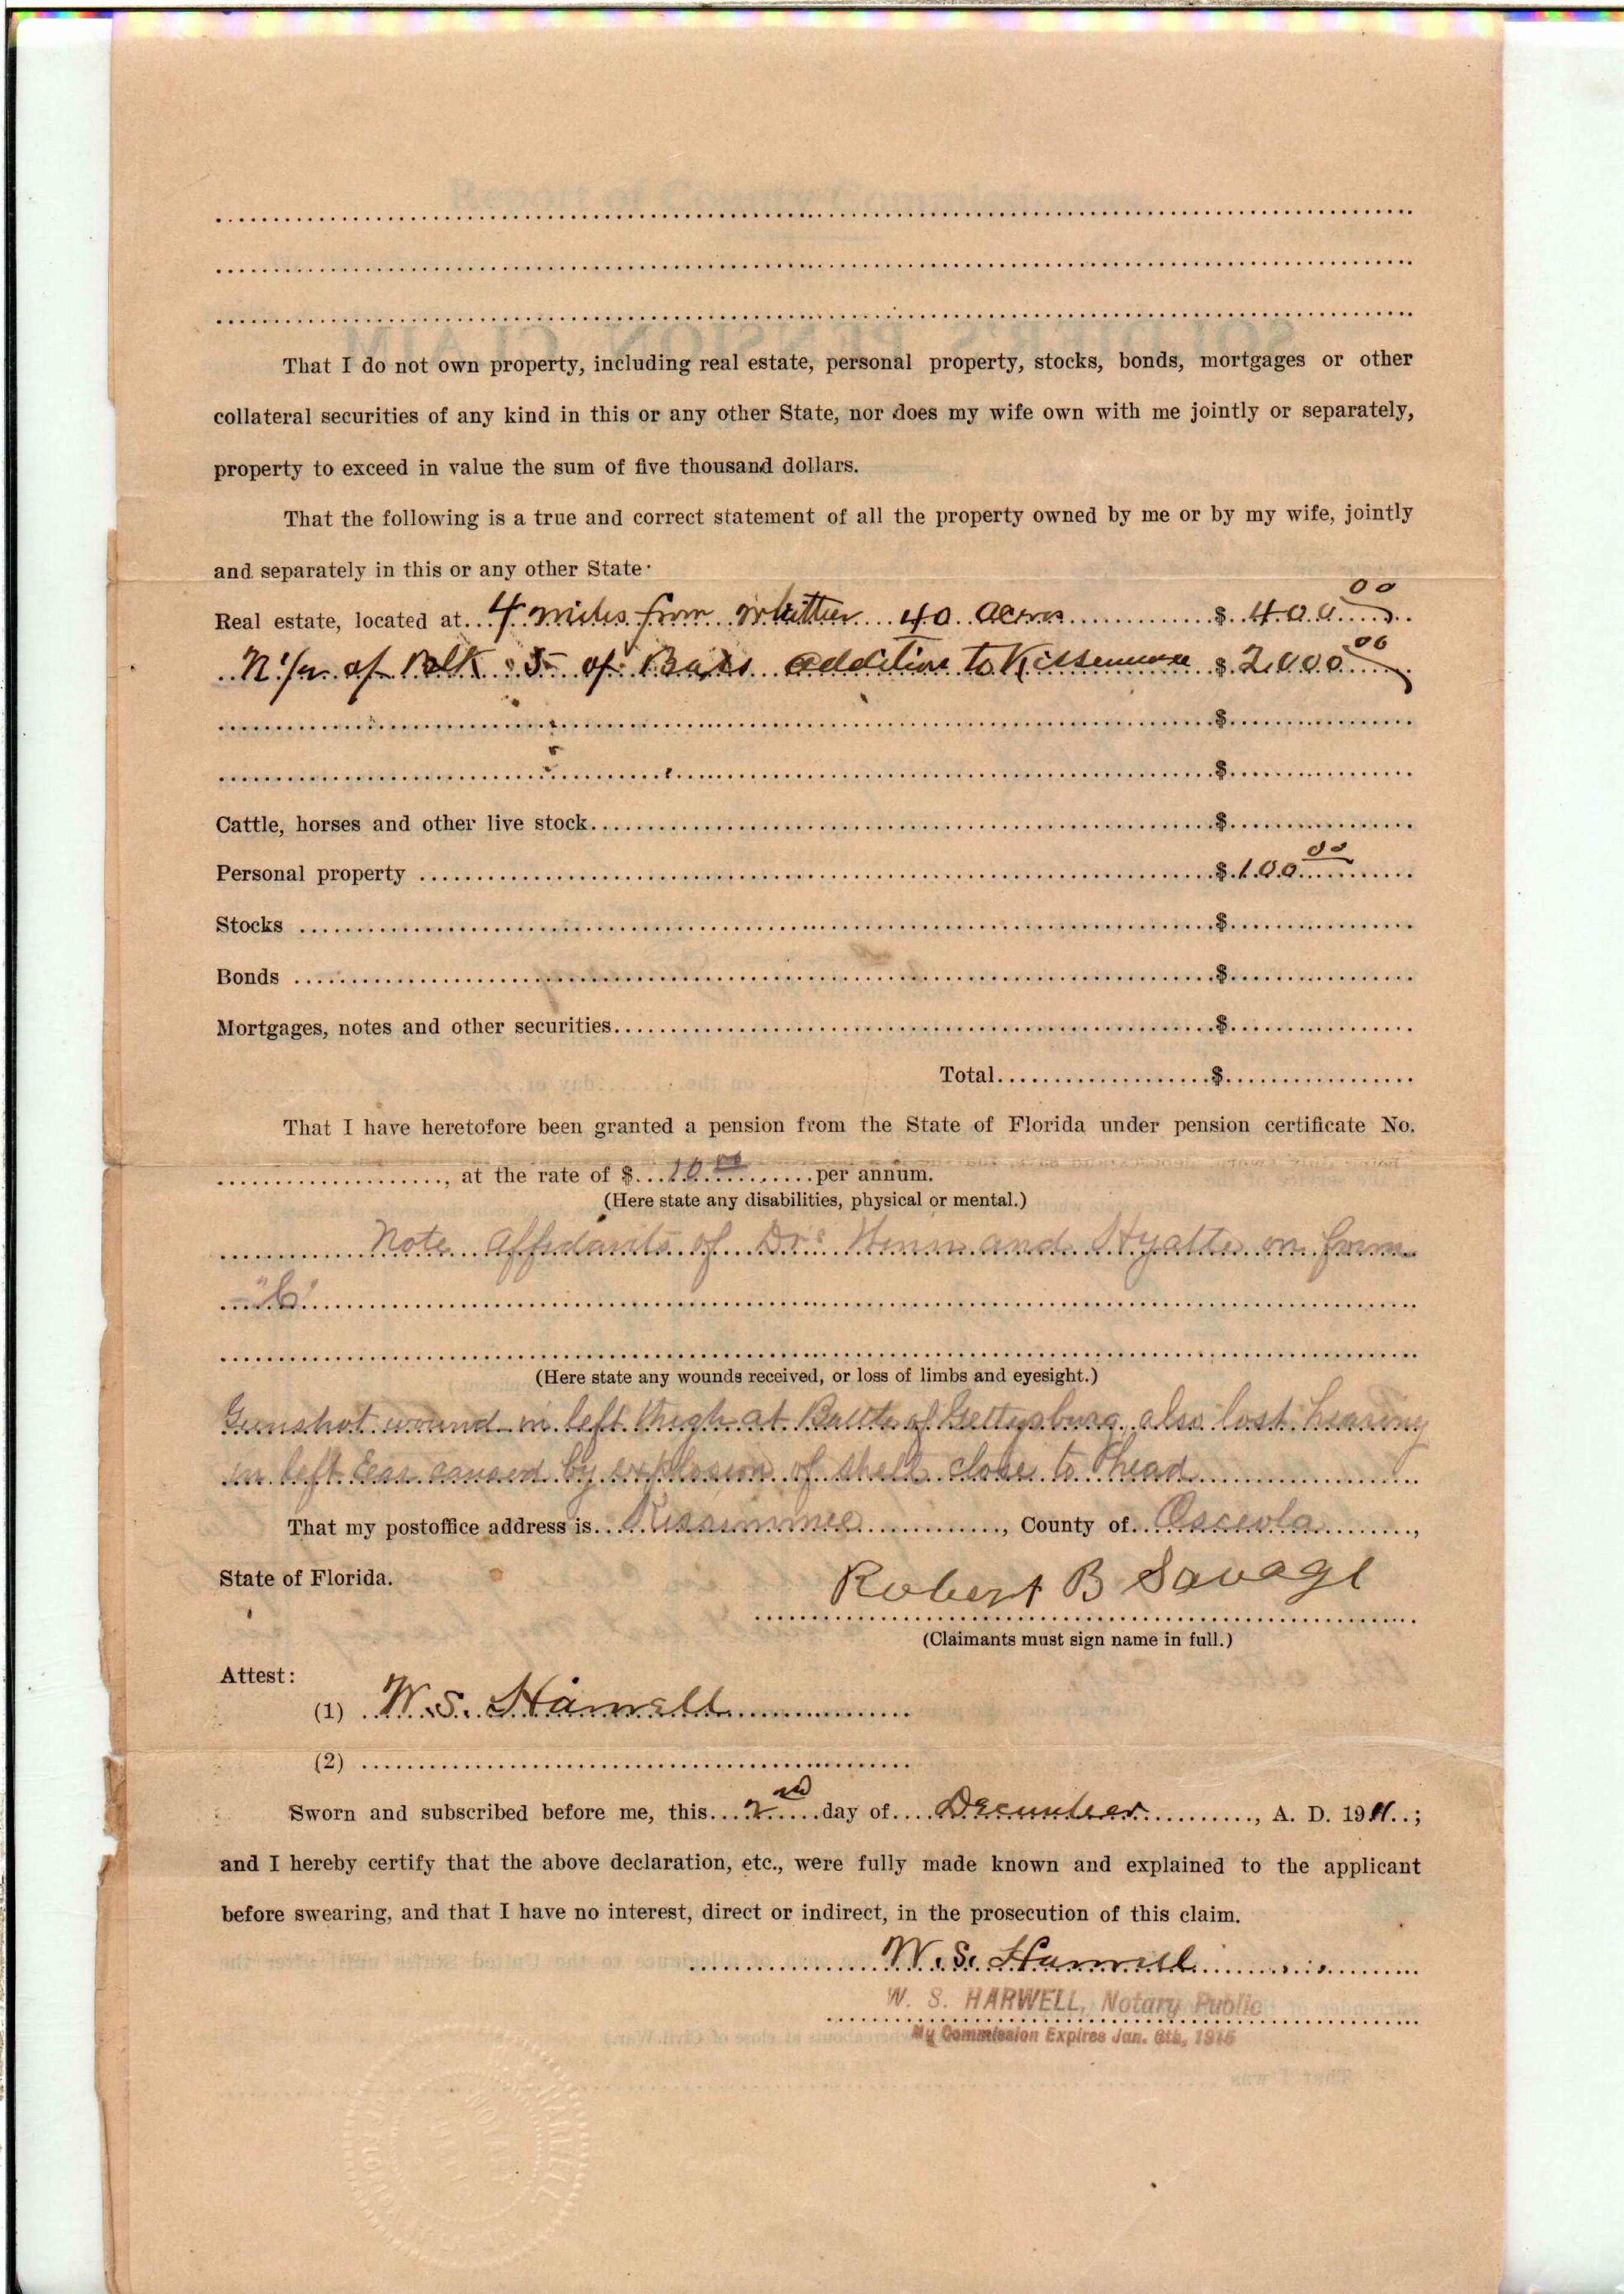 That I do not own property, including real estate, personal property, stocks, bonds, mortgages or other
collateral securities of any kind in this or any other State, nor does my wife own with me jointly or separately,
property to exceed in value the sum of five thousand dollars.
That the following is a true and correct statement of all the property owned by me or by my wife, jointly
and separately in this or any other State.
Real estate, located at 4 miles from Whittier 40 acres $ 400 00
N 1/2 of Blk 5 of Bass addition to Kissimmee $ 2000 00
$
$
Cattle, horses and other live stock $
Personal property $ 100 00
Stocks $
Bonds $
Mortgages, notes and other securities $
Total $
That I have heretofore been granted a pension from the State of Florida under pension certificate No.
, at the rate of $ 10 00 per annum.
(Here state any disabilities, physical or mental.)
Note affidavits of Drs and Hyatt on form

(Here state any wounds received, or loss of limbs and eyesight.)
Gunshot wound in left thigh at Battle of Gettysburg, also lost hearing
in left Ear caused by explosion of shell close to head
That my postoffice address is Kissimmee, County of Osceola,
State of Florida.
Robert B Savage
(Claimants must sign name in full.)
Attest:
(1) W. S. Harwell
(2)
Sworn and subscribed before me, this 2nd day of December, A. D. 1911;
and I hereby certify that the above declaration, etc., were fully made known and explained to the applicant
before swearing, and that I have no interest, direct or indirect, in the prosecution of this claim.
W. S. Harwell
W. S. HARWELL, Notary Public
My Commission Expires Jan. 6th, 1915